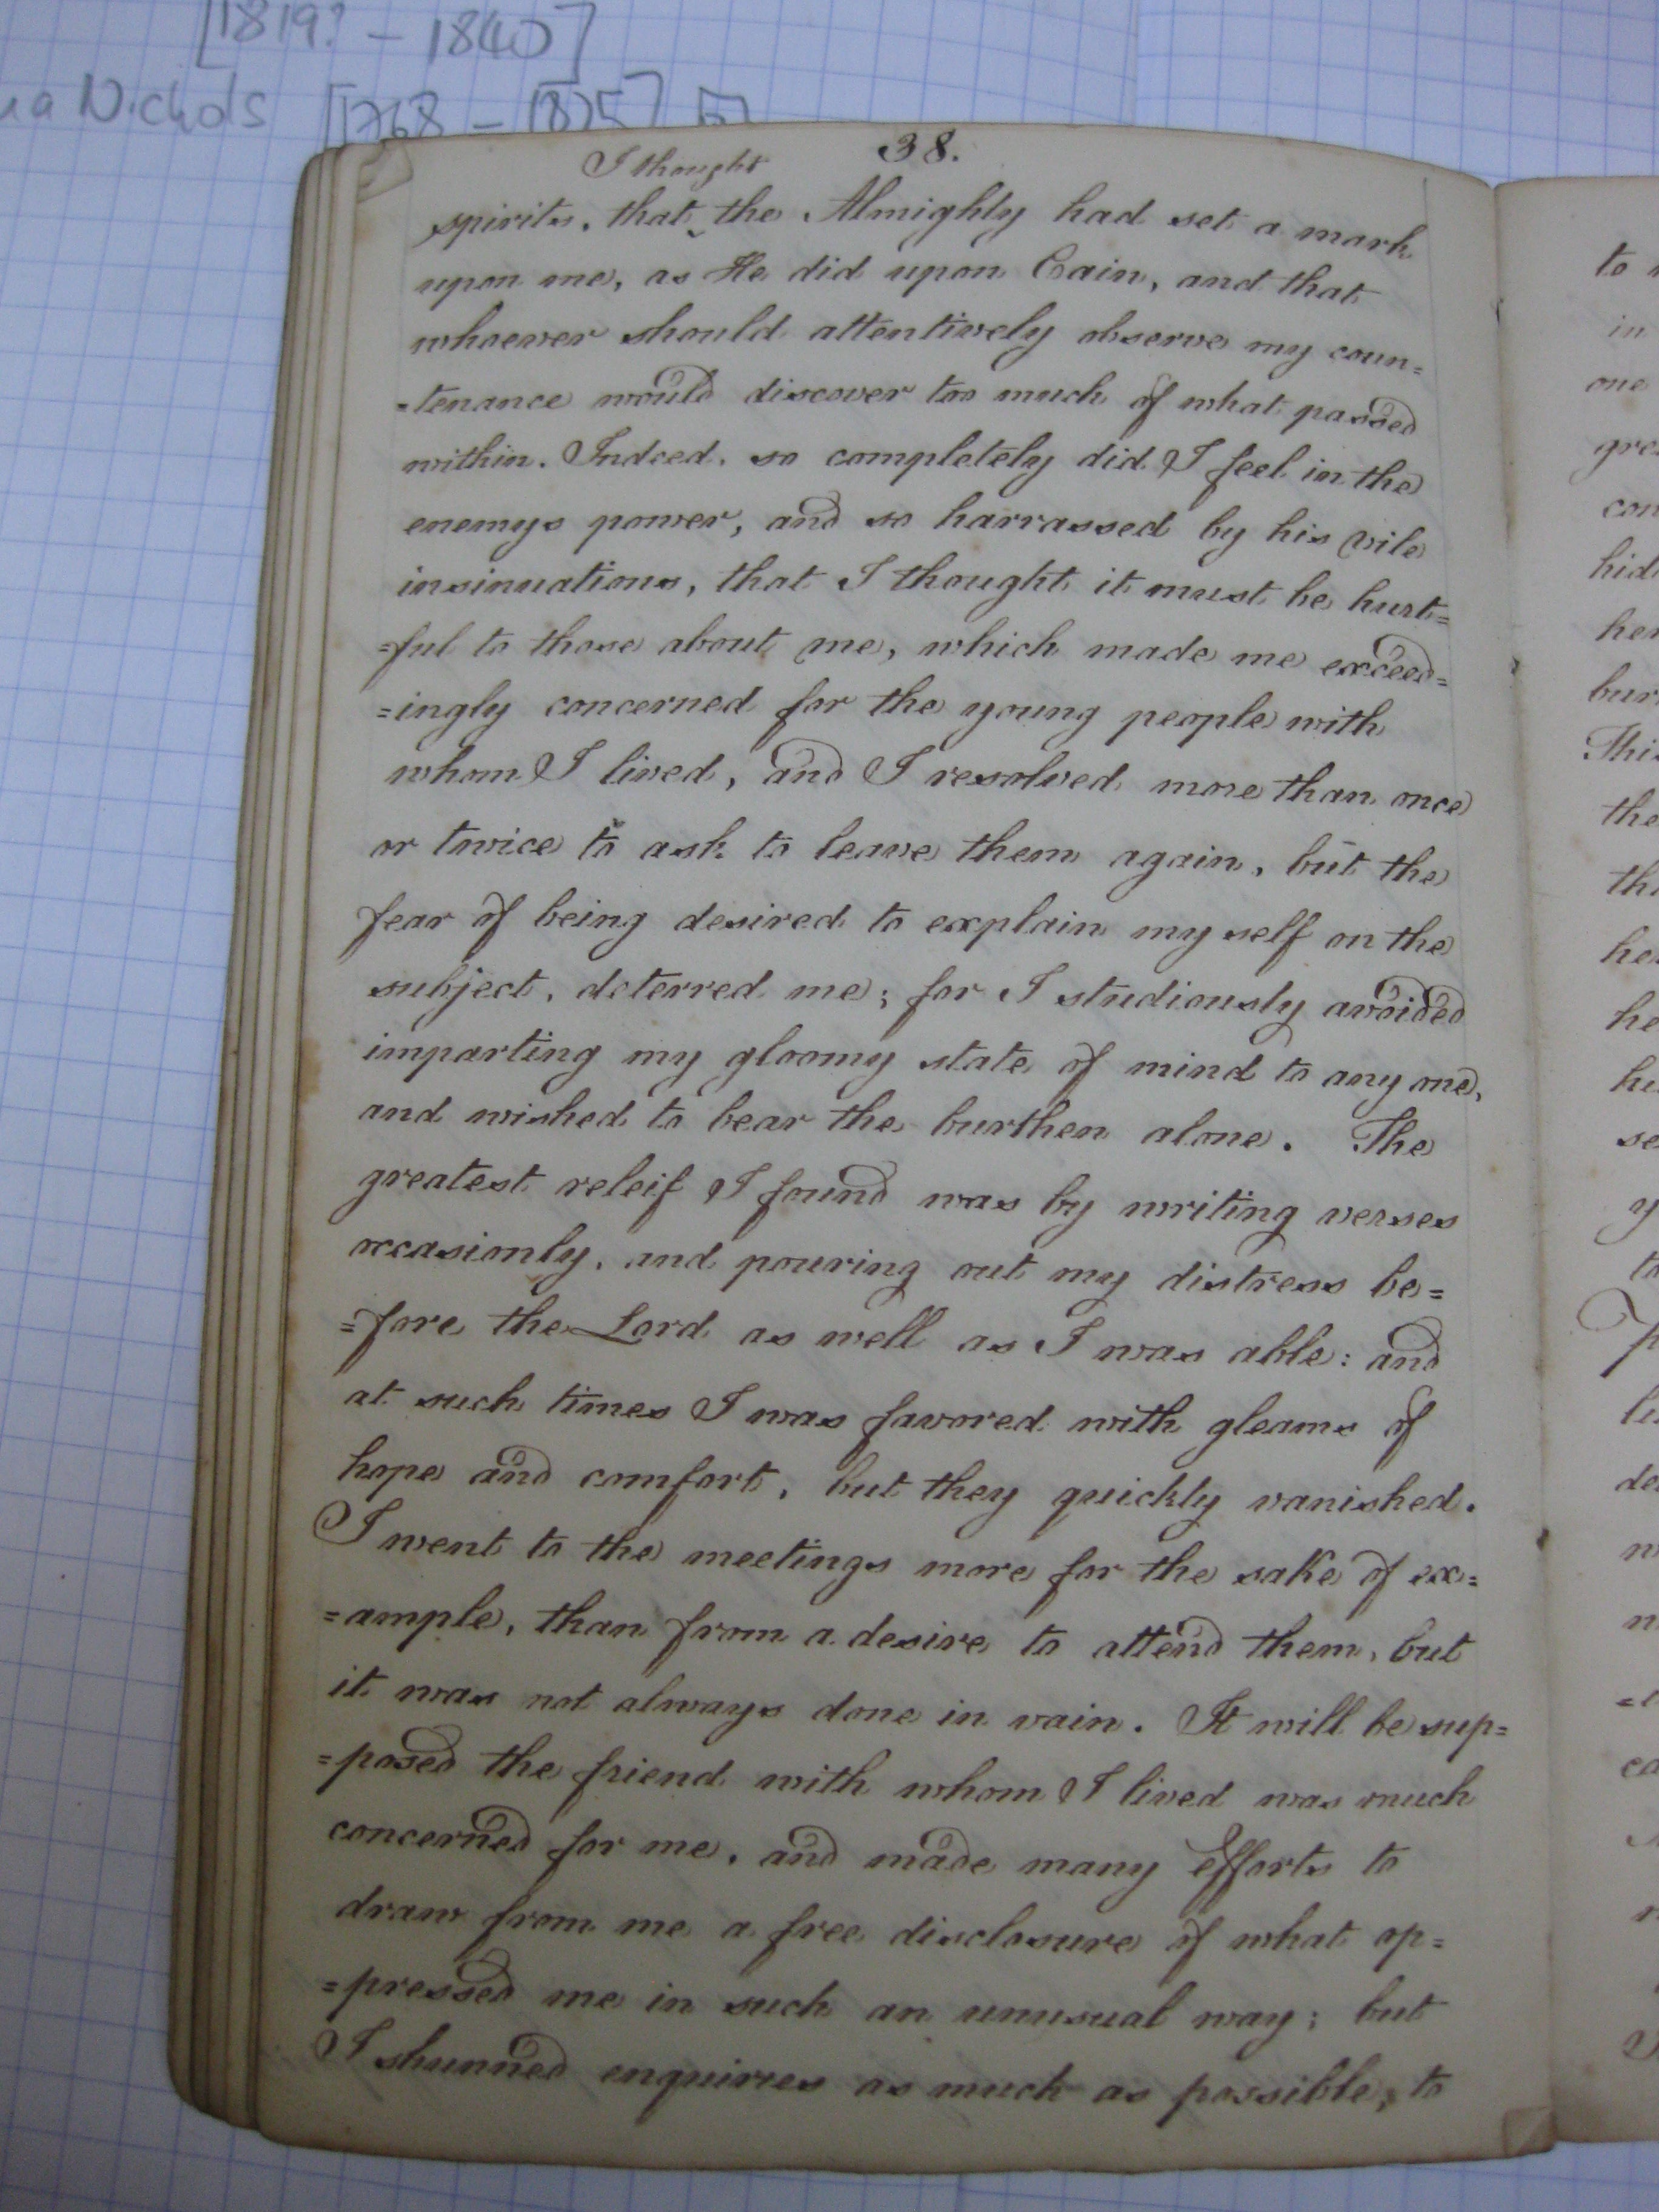 [1819? - 1840]
Nichols [1768 - 1825]
38.
I thought
spirits, that the Almighty had set a mark
upon me, as He did upon Cain, and that
whoever should attentively observe my coun=
=tenance would discover too much of what passed
within. Indeed, so completely did I feel in the
enemys power, and so harrassed by his vile
insinuations, that I thought it must be hurt=
=ful to those about me, which made me exceed=
=ingly concerned for the young people with
whom I lived, and I resolved more than once
or twice to ask to leave them again, but the
fear of being desired to explain my self on the
subject, deterred me; for I studiously avoided
imparting my gloomy state of mind to any one,
and wished to bear the burthen alone. The
greatest releif I found was by writing verses
occasionly, and pouring out my distress be=
=fore the Lord as well as I was able: and
at such times I was favored with gleams of
hope and comfort, but they quickly vanished.
I went to the meetings more for the sake of ex=
=ample, than from a desire to attend them, but
it was not always done in vain. It will be sup=
=posed the friend with whom I lived was much
concerned for me, and made many efforts to
draw from me a free disclosure of what op=
=pressed me in such an unusual way; but
I shunned enquiries as much as possible, to
to
in
one